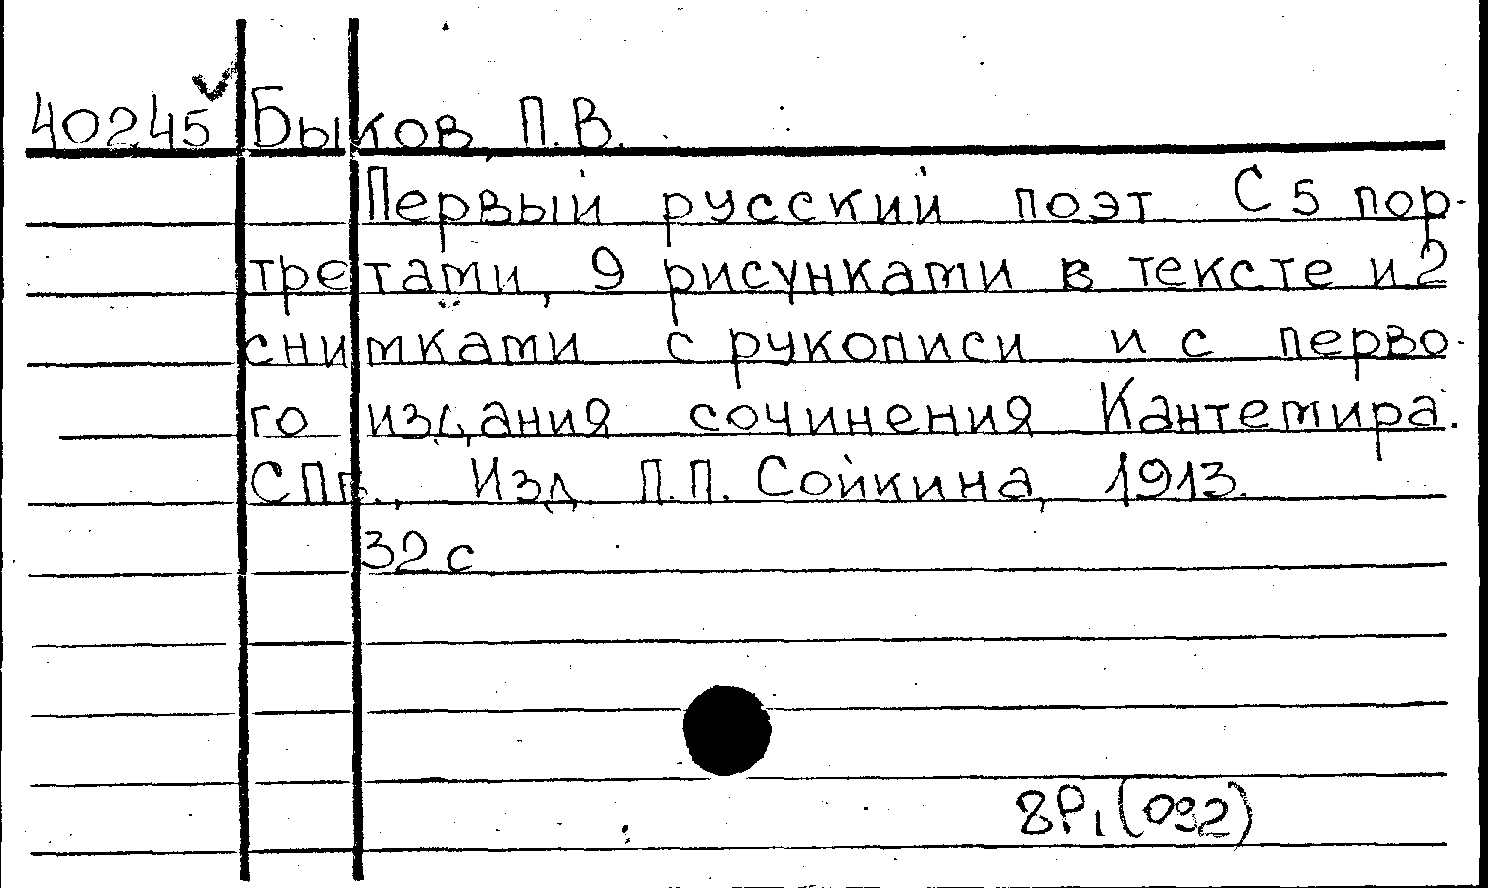 40245 Быков, П.В.
Первый русский поэт С 5 пор-
третами, 9 рисунками в тексте и 2
снимками с рукописи и с перво-
го издания сочинения Кантемира.
СПб., Изд. П.П. Сойкина, 1913.
32 с
8Р1(092)